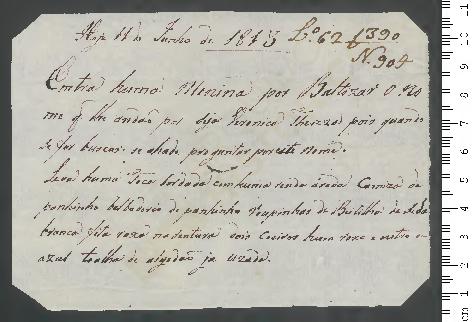 Hoje 11 de Junho de 1813 Lº 62 f 390
N. 904
Entra huma Menina por Baltezar o No
me q lhe andão por seja Veronica Thereza pois quando
se for buscar se ahade preguntar por este Nome.
Leva huma Toca bordada com huma renda Camiza de
panhinho de panhinho Roupinhas de de
branca fita roxa na sentura dois Coeiros hum roxo e outro
azul toalha de algodão ja uzada.